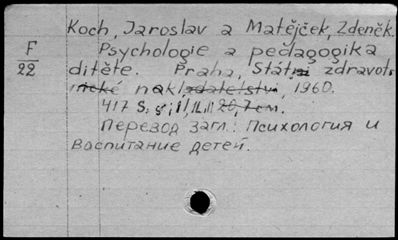 Koch, Jaroslav a Matějček, Zdeněk.
F
22
Psychologie a pedagogika
dítěte. Praha, Státní zdravot-
nické nakladatelství, 1960.
417 S. s il. 20,7 cm.
Перевод загл.: Психология и
воспитание детей.